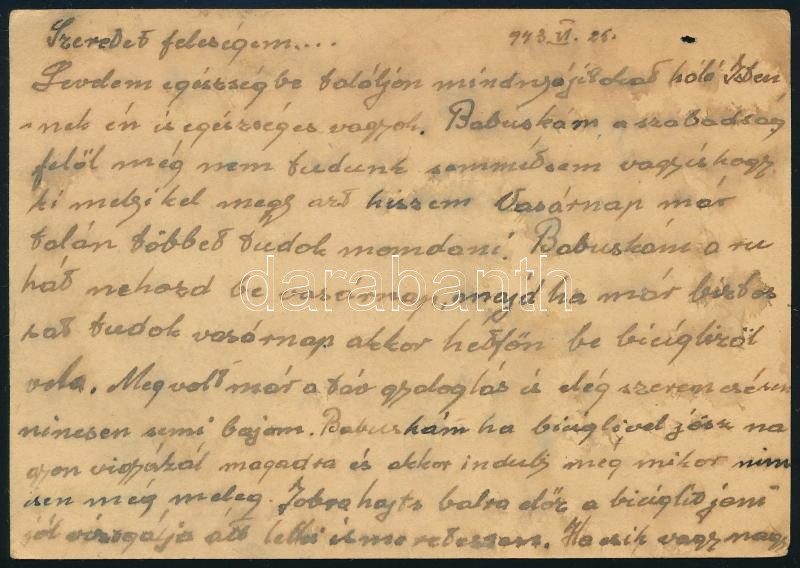 Szeretet feleségem.... 943 VI. 25.
Levelem egészségbe találjon mindnyájítokat háló Isten
-nek én is egészséges vagyok. Babuskám a szabadság
felöl még nem tudunk semmétsem vagyishogy
ki melyikel megy azt hiszem Vasárnap már
talán többet tudok mondani. Babuskám a ru
hát nehozd be vasárnap, majd ha már biztos
sat tudok vasárnap akkor hétfőn be biciglizöl
vele. Meg volt már a táv gyaloglás is elég szerencsésen
nincsen semi bajom. Babuskám ha biciglivel jösz na
gyon vigyázál magadra és akkor indulj meg mikor nin
csen még meleg. Jobra hajts balra előz a biciglit
jól vizsgálja át Ha csik vagy nagy
darabanth